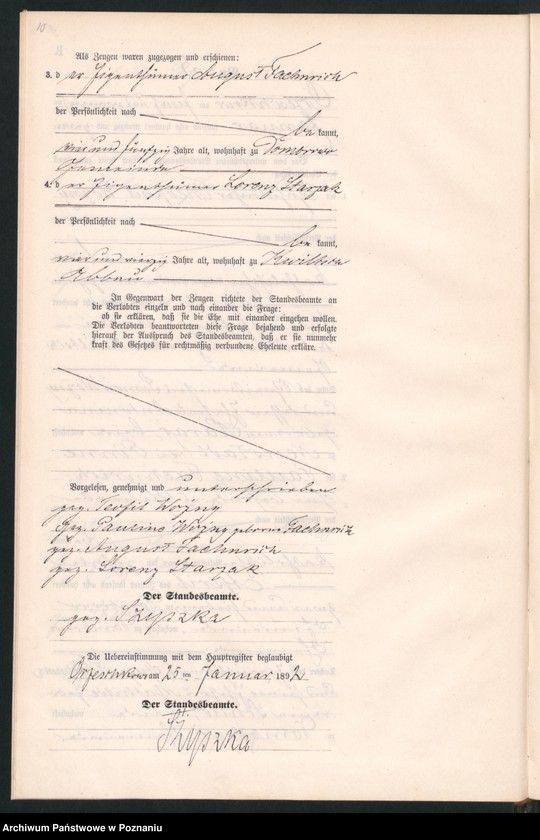 10
Als Zeugen waren zugezogen und erschienen:
3. d er Eigenthümer August Fachmrich
der Persönlichkeit nach
be kannt,
ein und fünfzig Jahre alt, wohnhaft zu Dombrowo
Gemeinde
4. d er Eigenthümer Lorenz Starzak
der Persönlichkeit nach
be kannt,
vier und vierzig Jahre alt, wohnhaft zu Kwiltsch
Abbau
In Gegenwart der Zeugen richtete der Standesbeamte an
die Verlobten einzeln und nach einander die Frage:
ob sie erklären, daß sie die Ehe mit einander eingehen wollen.
Die Verlobten beantworteten diese Frage bejahend und erfolgte
hierauf der Ausspruch des Standesbeamten, daß er sie nunmehr
kraft des Gesetzes für rechtmäßig verbundene Eheleute erkläre.
Vorgelesen, genehmigt und unterschrieben
gez. Teofil Wojny
gez. Pauline Wojny geborene Fachmrich
gez. August Fachmrich
gez. Lorenz Starzak
Der Standesbeamte.
gez.
Die Uebereinstimmung mit dem Hauptregister beglaubigt
am 25 ten Januar 1892
Der Standesbeamte.
Archiwum Państwowe w Poznaniu